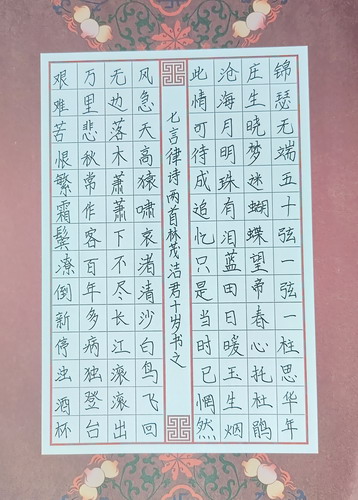 锦瑟无端五十弦一弦一柱思华年
庄生晓梦迷蝴蝶望帝春心托杜鹃
沧海月明珠有泪蓝田日暖玉生烟
此情可待成追忆只是当时已惘然
七言律诗两首林茂洁君十岁书之
风急天高猿啸哀渚清沙白鸟飞回
无边落木萧萧下不尽长江滚滚出
万里悲秋常作客百年多病独登台
艰难苦恨繁霜鬓潦倒新停浊酒杯